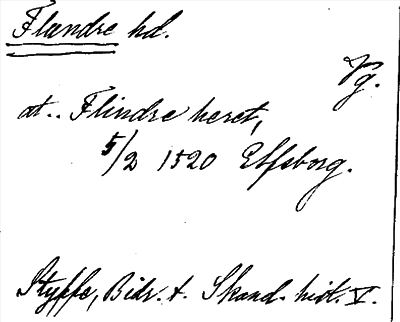 Flundre hd.
Vg.
at.. Flindre heret,
5/2 1520 Elfsborg.
Styffe, Bidr. t. Skand. hist. V.